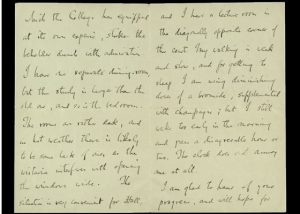 And the College has equipped
at its own expense, strikes the
beholder dumb with admiration
I have no separate dining-room,
but the study is larger than the
old one, and so is the bedroom.
The rooms are rather dark, and
in hot weather there is likely
to be some lack of air, as the
wistaria interferes with opening
the windows wide. The
situation is very convenient for Hall,
and I have a lecture room in
the diagonally opposite corner of
the court. My walking is weak
and slow, and for getting to
sleep I am using diminishing
doses of a bromide, supplemented
with champagne; but I still
wake too early in the morning
and pass a disagreeable hour or
two. The clock does not annoy
me at all.
I am glad to hear of your
progress, and will hope for